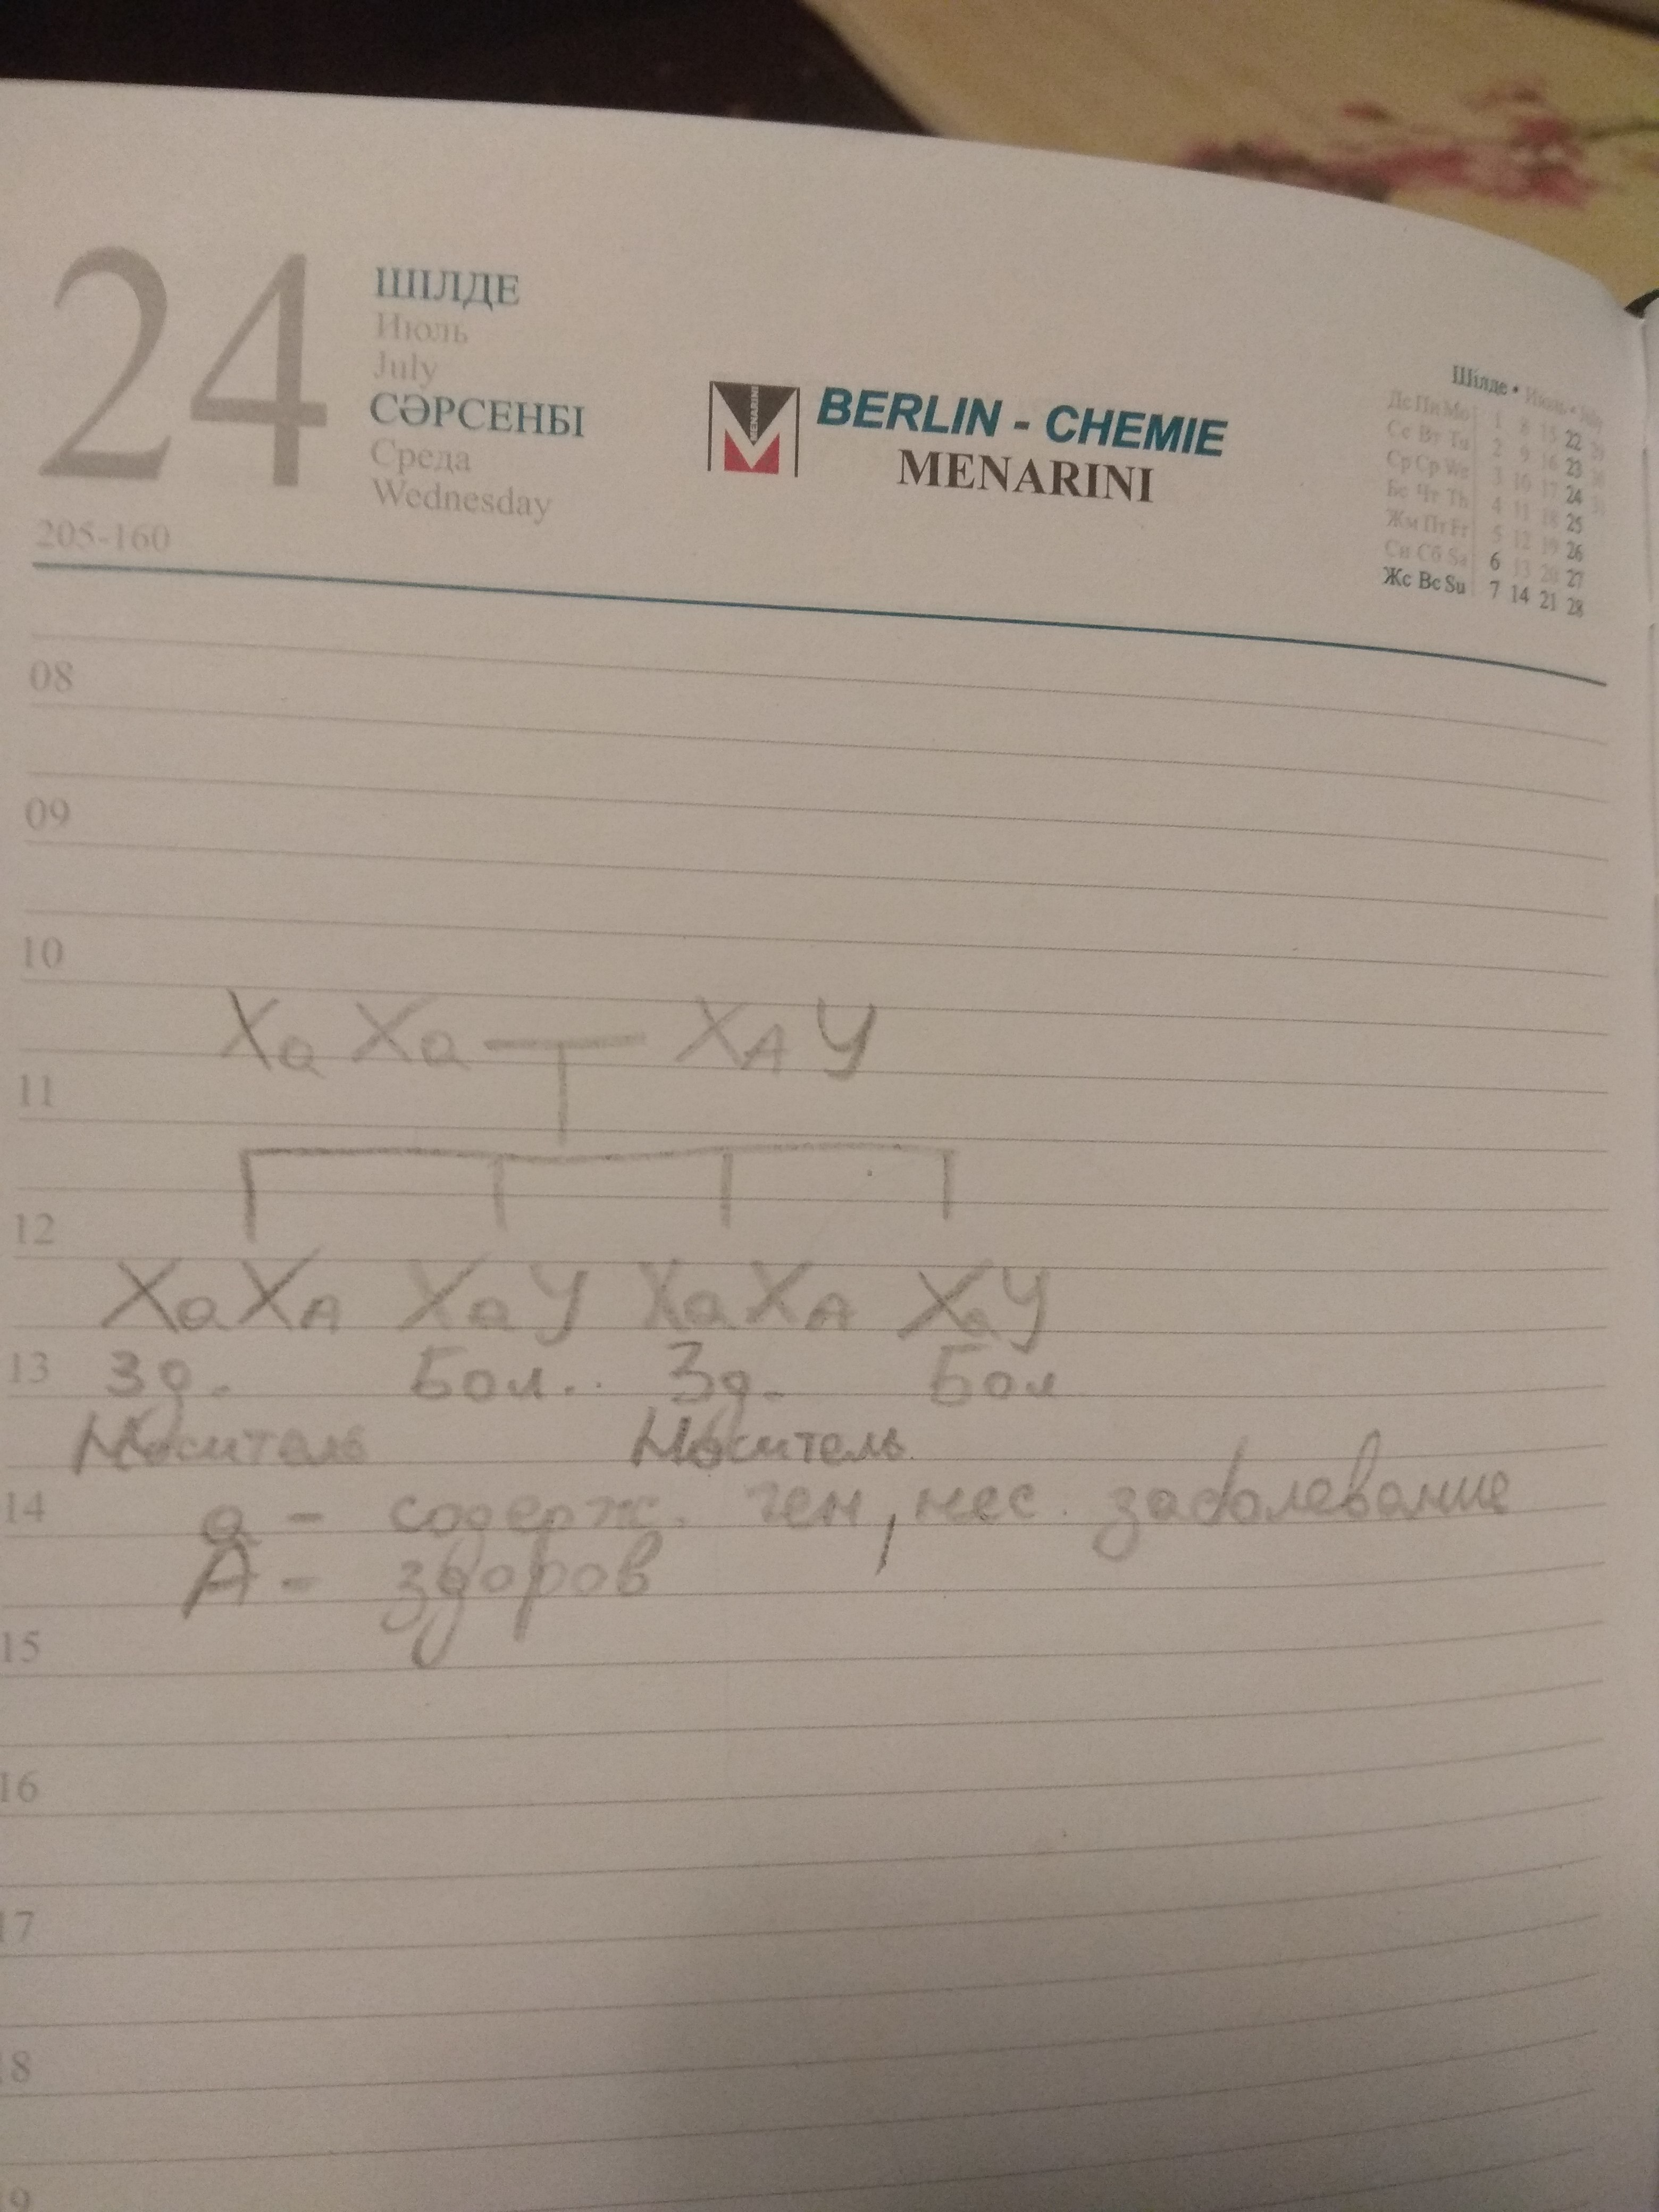 24
ШІЛДЕ
Июль
July
СӘРСЕНБІ
Среда
Wednesday
205-160
MENARINI
BERLIN - CHEMIE
MENARINI
Шілде • Июль • July
Дс Пн Mo 1 8 15 22 29
Сс Вт Tu 2 9 16 23 30
Ср Ср We 3 10 17 24 31
Бс Чт Th 4 11 18 25
Жм Пт Fr 5 12 19 26
Сн Сб Sa 6 13 20 27
Жс Вс Su 7 14 21 28
08
09
10
Xa Xa XA У
11
12
XaXA XaУ XaXA XaУ
13
Зд. Бол. Зд. Бол
Носитель Носитель
14
а - содерж. ген, нес. заболевание
А - здоров
15
16
17
18
19